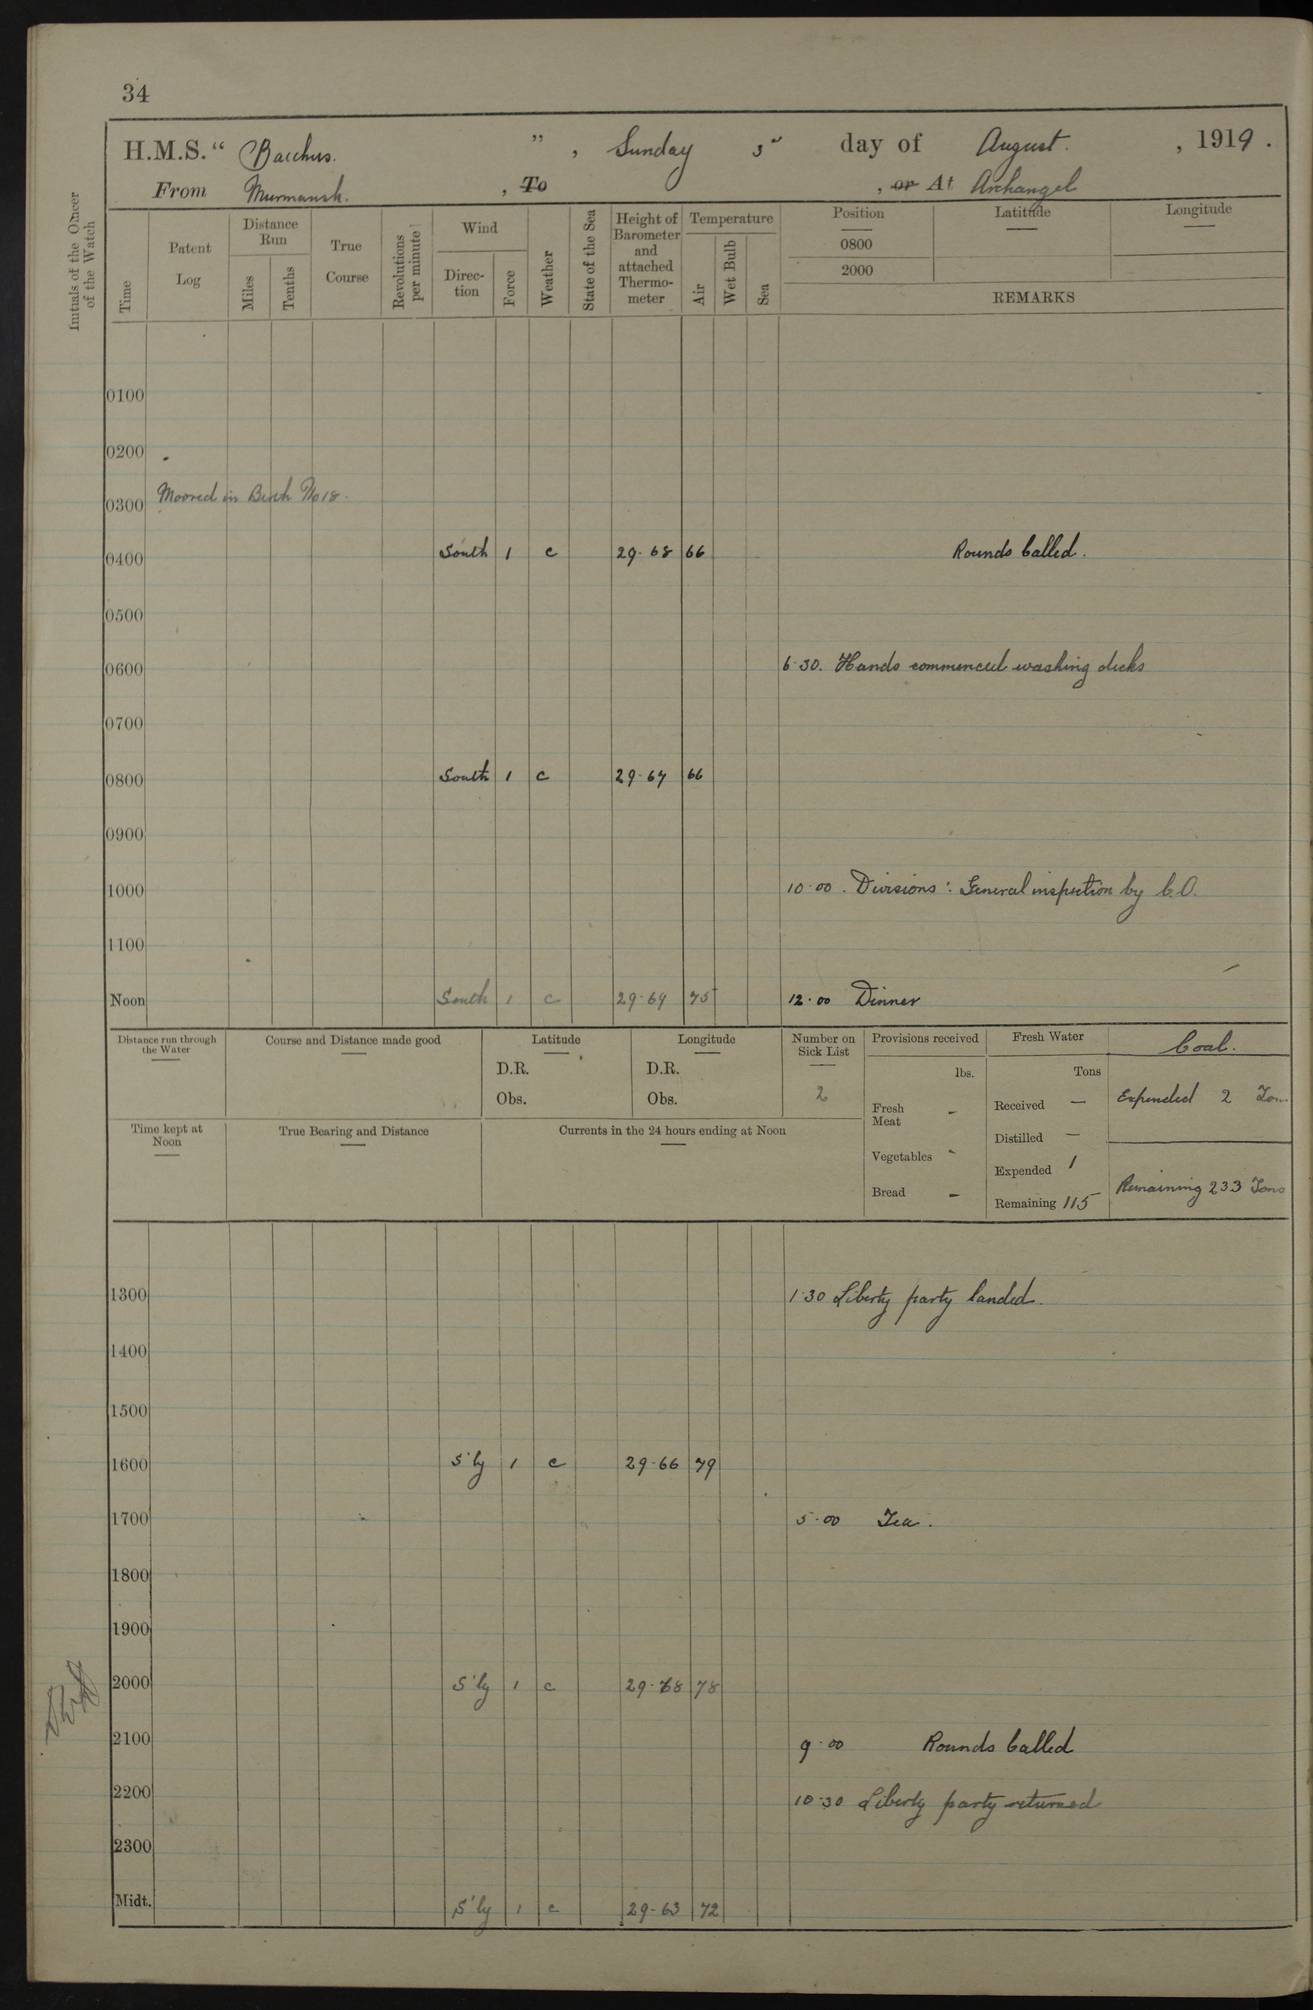 34
H.M.S. “ Bacchus. ” , Sunday 3rd day of August. , 1919 .
From Murmansk. , To , or At Archangel
Initials of the Officer of the Watch
Time
Patent Log
Distance Run
Miles
Tenths
True Course
Revolutions per minute
Wind
Direc-tion
Force
Weather
State of the Sea
Height of Barometer and attached Thermo-meter
Temperature
Air
Wet Bulb
Sea
Position Latitude Longitude
0800
2000
REMARKS
0100
0200
Moored in Berth No 18.
0300
0400 South 1 c 29.68 66 Rounds Called.
0500
0600 6.30. Hands commenced washing decks
0700
0800 South 1 c 29.67 66
0900
1000 10.00. Divisions : General inspection by C.O.
1100
Noon South 1 c 29.69 75 12.00 Dinner
Distance run through the Water
Course and Distance made good
Latitude
D.R.
Obs.
Longitude
D.R.
Obs.
Number on Sick List
2
Provisions received
lbs.
Fresh Meat -
Vegetables -
Bread -
Fresh Water
Tons
Received —
Distilled —
Expended 1
Remaining 115
Coal.
Expended 2 Tons
Remaining 233 Tons
Time kept at Noon
True Bearing and Distance
Currents in the 24 hours ending at Noon
1300 1.30 Liberty party landed.
1400
1500
1600 S'ly 1 c 29.66 79
1700 5.00 Tea.
1800
1900
2000 S'ly 1 c 29.68 78
2100 9.00 Rounds Called
2200 10.30 Liberty party returned
2300
Midt. S'ly 1 c 29-63 72